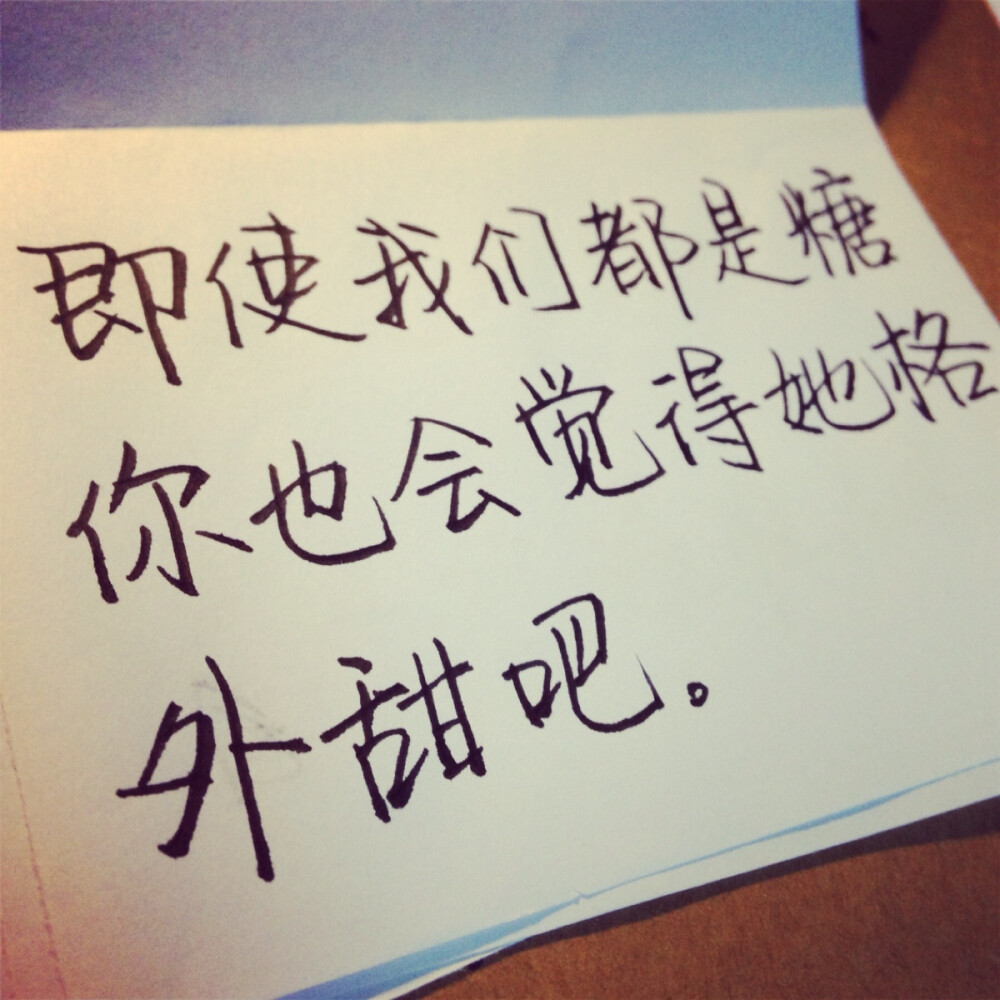 即使我们都是糖
你也会觉得她格
外甜吧。